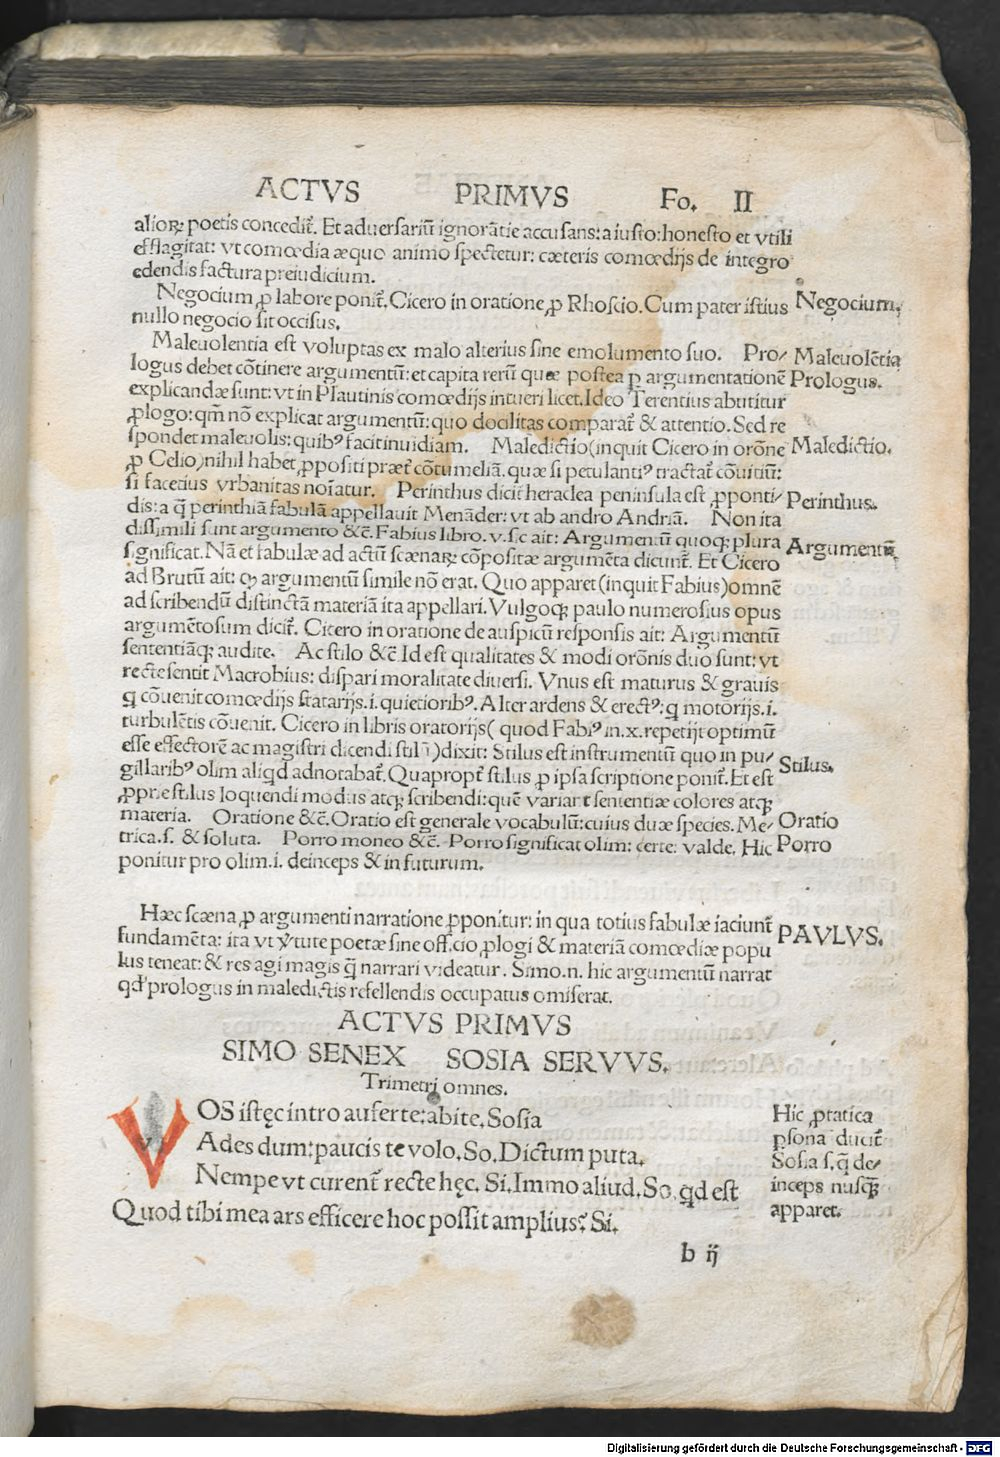 ACTVS PRIMVS Fo. II
alioꝝ poetis concedit̃. Et aduersariũ ignorãtie accusans: a iusto: honesto et vtili
efflagitat: vt comœdia æquo animo spectetur: cæteris comœdijs de integro
edendis factura preiudicium.
Negocium ꝓ labore ponit̃. Cicero in oratione ꝓ Rhoscio. Cum pater istius
Negocium.
nullo negocio sit occisus.
Maleuolentia est voluptas ex malo alterius sine emolumento suo. Pro/
Maleuolẽtia
logus debet cõtinere argumentũ: et capita rerũ quæ postea ꝑ argumentationẽ
Prologus.
explicandæ sunt: vt in Plautinis comœdijs intueri licet. Ideo Terentius abutitur
ꝓlogo: qm̃ nõ explicat argumentũ: quo docilitas comparat̃ & attentio. Sed re
spondet maleuolis: quibꝰ facit inuidiam. Maledictio (inquit Cicero in orõne
Maledictio.
ꝓ Celio) nihil habet ꝓpositi præt̃ cõtumeliã. quæ si petulantiꝰ tractat̃ cõuitiũ:
si facetius vrbanitas noĩatur. Perinthus dicit heraclea peninsula est ꝓponti/
Perinthus.
dis: a q̃ perinthiã fabulã appellauit Menãder: vt ab andro Andriã. Non ita
dissimili sunt argumento &c̃. Fabius libro. v. sic ait: Argumentũ quoqꝫ plura
Argumentũ.
significat. Nã et fabulæ ad actũ scænaꝝ cõpositæ argumẽta dicunt̃. Et Cicero
ad Brutũ ait: ꝙ argumentũ simile nõ erat. Quo apparet (inquit Fabius) omnẽ
ad scribendũ distinctã materiã ita appellari. Vulgoqꝫ paulo numerosius opus
argumẽtosum dicit̃. Cicero in oratione de auspicũ responsis ait: Argumentũ
sententiãqꝫ audite. Ac stilo &c̃ Id est qualitates & modi orõnis duo sunt: vt
recte sentit Macrobius: dispari moralitate diuersi. Vnus est maturus & grauis
q̃ cõuenit comœdijs statarijs. i. quietioribꝰ. Alter ardens & erectꝰ: q̃ motorijs. i.
turbulẽtis cõuenit. Cicero in libris oratorijs ( quod Fabiꝰ in. x. repetijt optimũ
esse effectorẽ ac magistri dicendi stilũ) dixit: Stilus est instrumentũ quo in pu/
Stilus.
gillaribꝰ olim aliq̃d adnotabat̃. Quapropt̃ stilus ꝓ ipsa scriptione ponit̃. Et est
ꝓprie stilus loquendi modus atqꝫ scribendi: quẽ variant sententiæ colores atqꝫ
materia. Oratione &c̃. Oratio est generale vocabulũ: cuius duæ species. Me/
Oratio
trica. s. & soluta. Porro moneo &c̃. Porro significat olim: certe: valde. Hic
Porro
ponitur pro olim. i. deinceps & in futurum.
Hæc scæna ꝓ argumenti narratione ꝓponitur: in qua totius fabulæ iaciunt̃
PAVLVS.
fundamẽta: ita vt ỹtute poetæ sine officio ꝓlogi & materiã comœdiæ popu
lus teneat: & res agi magis q̃ narrari videatur. Simo. n. hic argumentũ narrat
qd̃ prologus in maledictis refellendis occupatus omiserat.
ACTVS PRIMVS
SIMO SENEX SOSIA SERVVS.
Trimetri omnes.
VOS istęc intro auferte: abite. Sosia
Ades dum: paucis te volo. So. Dictum puta.
Nempe vt curent̃ recte hęc. Si. Immo aliud. So. qd est
Quod tibi mea ars efficere hoc possit amplius? Si.
Hic ꝓtatica
ꝑsona ducit̃
Sosia s. q̃ de/
inceps nusq̃
apparet.
b ij
Digitalisierung gefördert durch die Deutsche Forschungsgemeinschaft - DFG